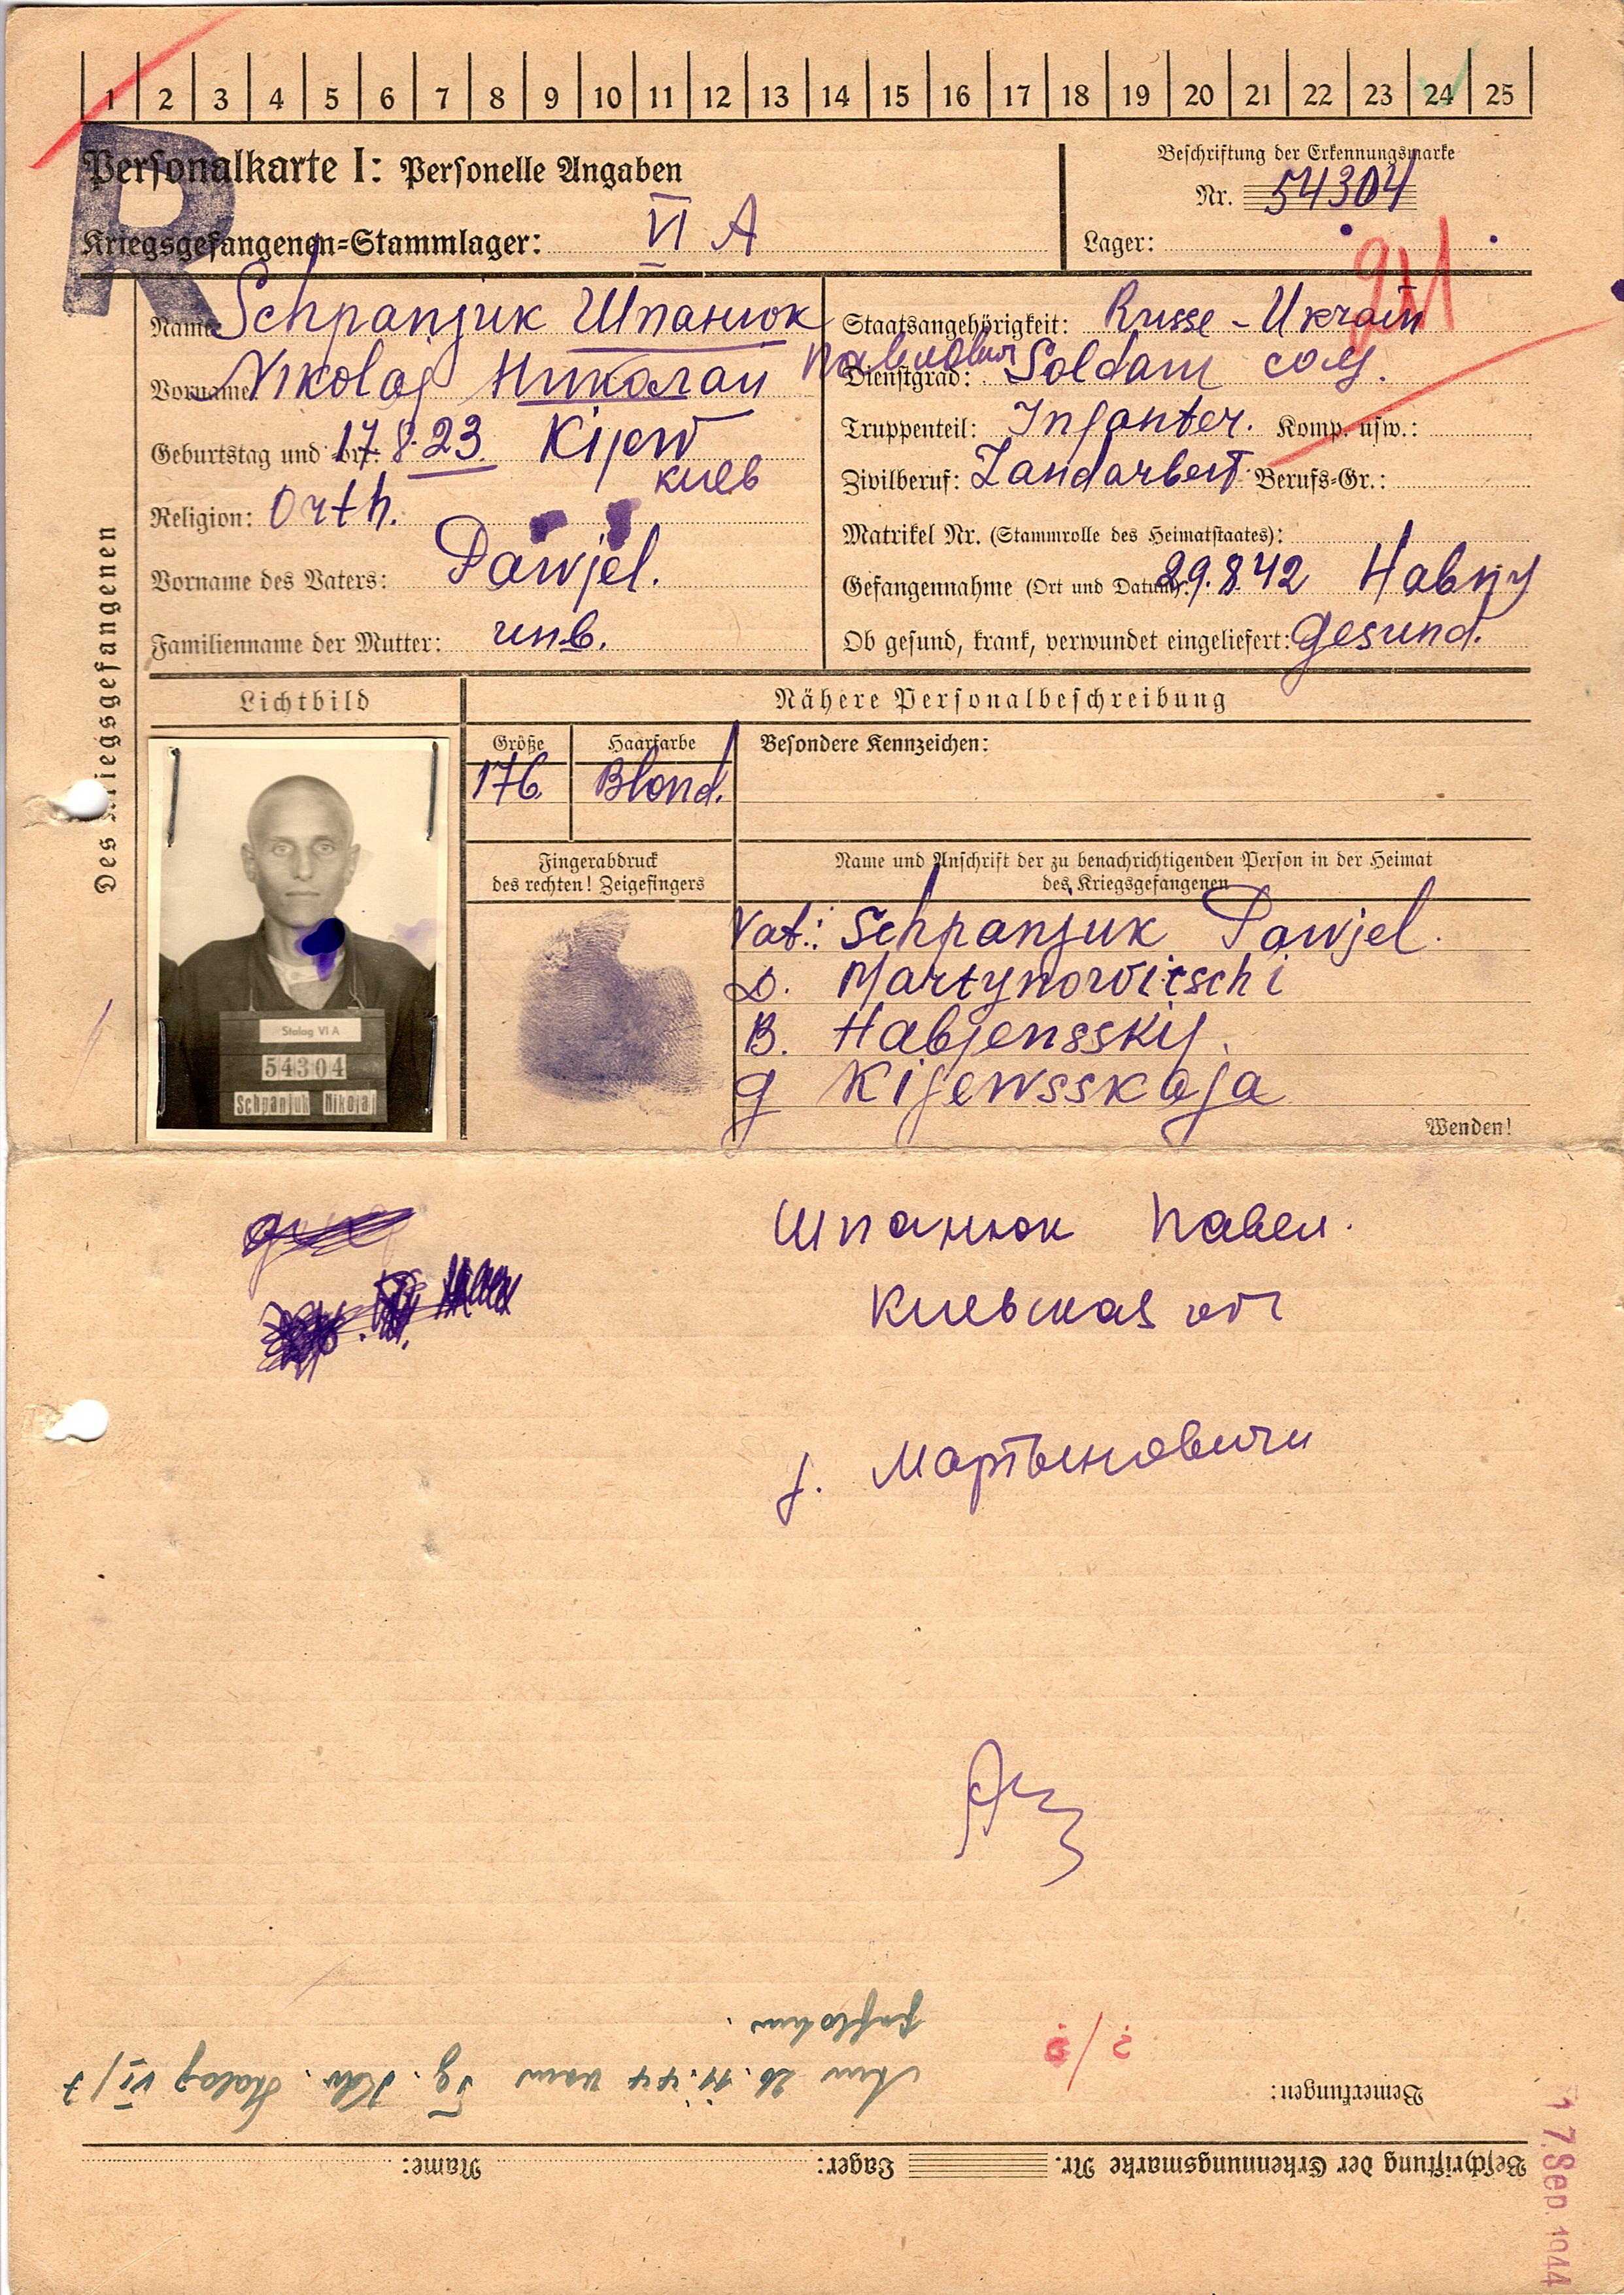 1 2 3 4 5 6 7 8 9 10 11 12 13 14 15 16 17 18 19 20 21 22 23 24 25
R
Personalkarte I: Personelle Angaben
Kriegsgefangenen=Stammlager: VI A
Beschriftung der Erkennungsmarke
Nr. 54304
Lager:
Des Kriegsgefangenen
Name: Schpanjuk Шпанюк
Vorname: Nikolaj Николай Павлович
Geburtstag und =ort: 17.8.23. Kijew
киев
Religion: Orth.
Vorname des Vaters: Pawjel.
Familienname der Mutter: unb.
Staatsangehörigkeit: Russe - Ukrain
Dienstgrad: Soldat
Truppenteil: Infanter. Komp. usw.:
Zivilberuf: Landarbeit Berufs=Gr.:
Matrikel Nr. (Stammrolle des Heimatstaates):
Gefangennahme (Ort und Datum): 29.8.42
Ob gesund, krank, verwundet eingeliefert: gesund.
Lichtbild
Nähere Personalbeschreibung
Größe
176.
Haarfarbe
Blond.
Besondere Kennzeichen:
Stalag VI A
54304
Schpanjuk Nikolaj
Fingerabdruck
des rechten! Zeigefingers
Name und Anschrift der zu benachrichtigenden Person in der Heimat
des Kriegsgefangenen
Vat.: Schpanjuk Pawjel.
D. Martynowitschi
B. Habjensskij.
g Kijewsskaja
Wenden!
Шпанюк Павел.
Киевская
Мартынович
Bemerkungen:
Am 26.11.44 vom Stalag VI/
Beschriftung der Erkennungsmarke Nr. Lager: Name:
17. Sep. 1944